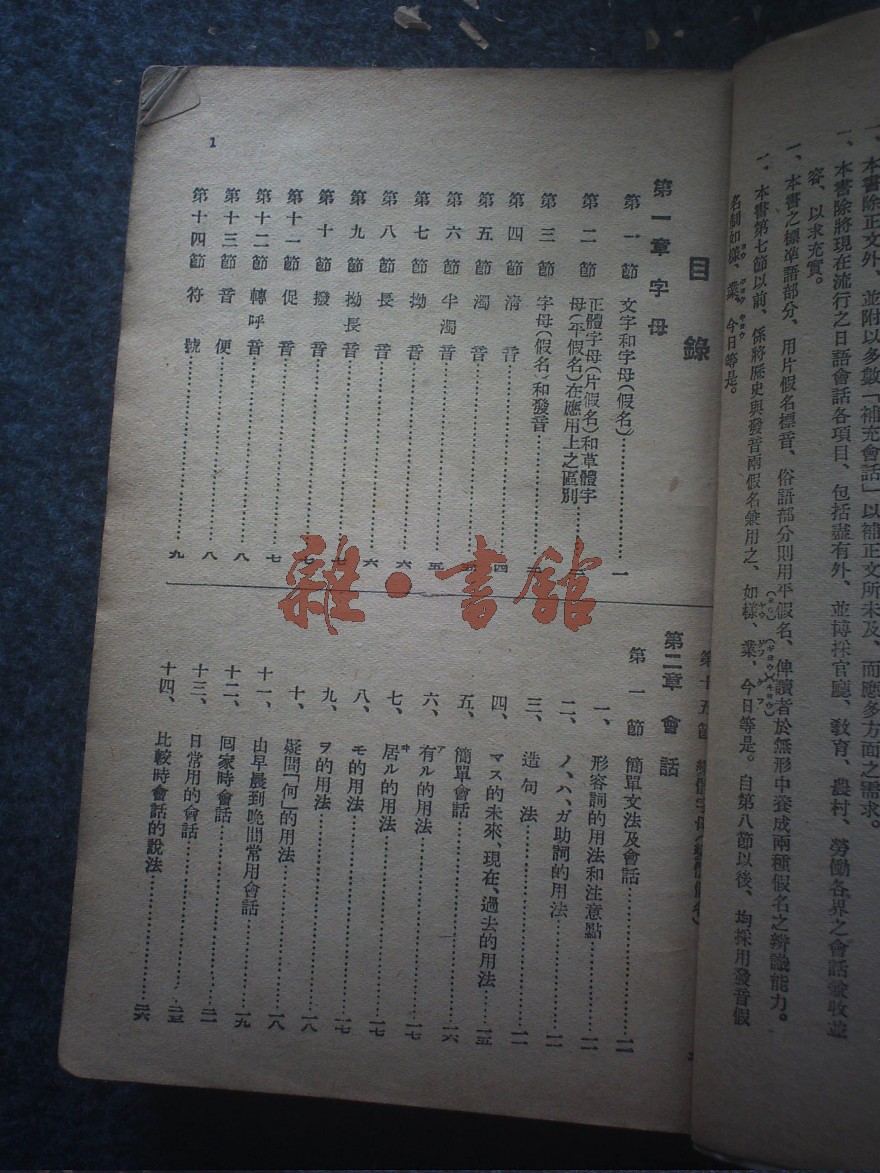 一、本書除正文外、並附以多數「補充會話」以補正文所未及、而應多方面之需求。
一、本書除將現在流行之日語會話各項目、包括盡有外、並博採官廳、敎育、農村、勞働各界之會話兼收並
容、以求充實。
一、本書之標準語部分、用片假名標音、俗語部分則用平假名、俾讀者於無形中養成兩種假名之辨識能力。
一、本書第七節以前、係將歷史與發音兩假名兼用之、如樣、業、今日等是。自第八節以後、均採用發音假
名制如樣、業、今日等是。
目錄
第一章 字母
第一節 文字和字母(假名)……一
第二節 正體字母(片假名)和草體字
母(平假名)在應用上之區別
第三節 字母(假名)和發音
第四節 淸音……四
第五節 濁音
第六節 半濁音……五
第七節 拗音……六
第八節 長音……六
第九節 拗長音
第十節 撥音
第十一節 促音……七
第十二節 轉呼音……八
第十三節 音便……八
第十四節 符號……九
第十五節
第二章 會話
第一節 簡單文法及會話……一一
一、形容詞的用法和注意點……一一
二、ノ、ハ、ガ助詞的用法……一一
三、造句法……一二
四、マス的未來、現在、過去的用法……一五
五、簡單會話……一六
六、有ル的用法……一七
七、居ル的用法……一七
八、モ的用法……一七
九、ヲ的用法……一八
十、疑問「何」的用法……一八
十一、由早晨到晚間常用會話……一九
十二、囘家時會話……二一
十三、日常用的會話……二五
十四、比較時會話的說法……二六
1
雜·書館